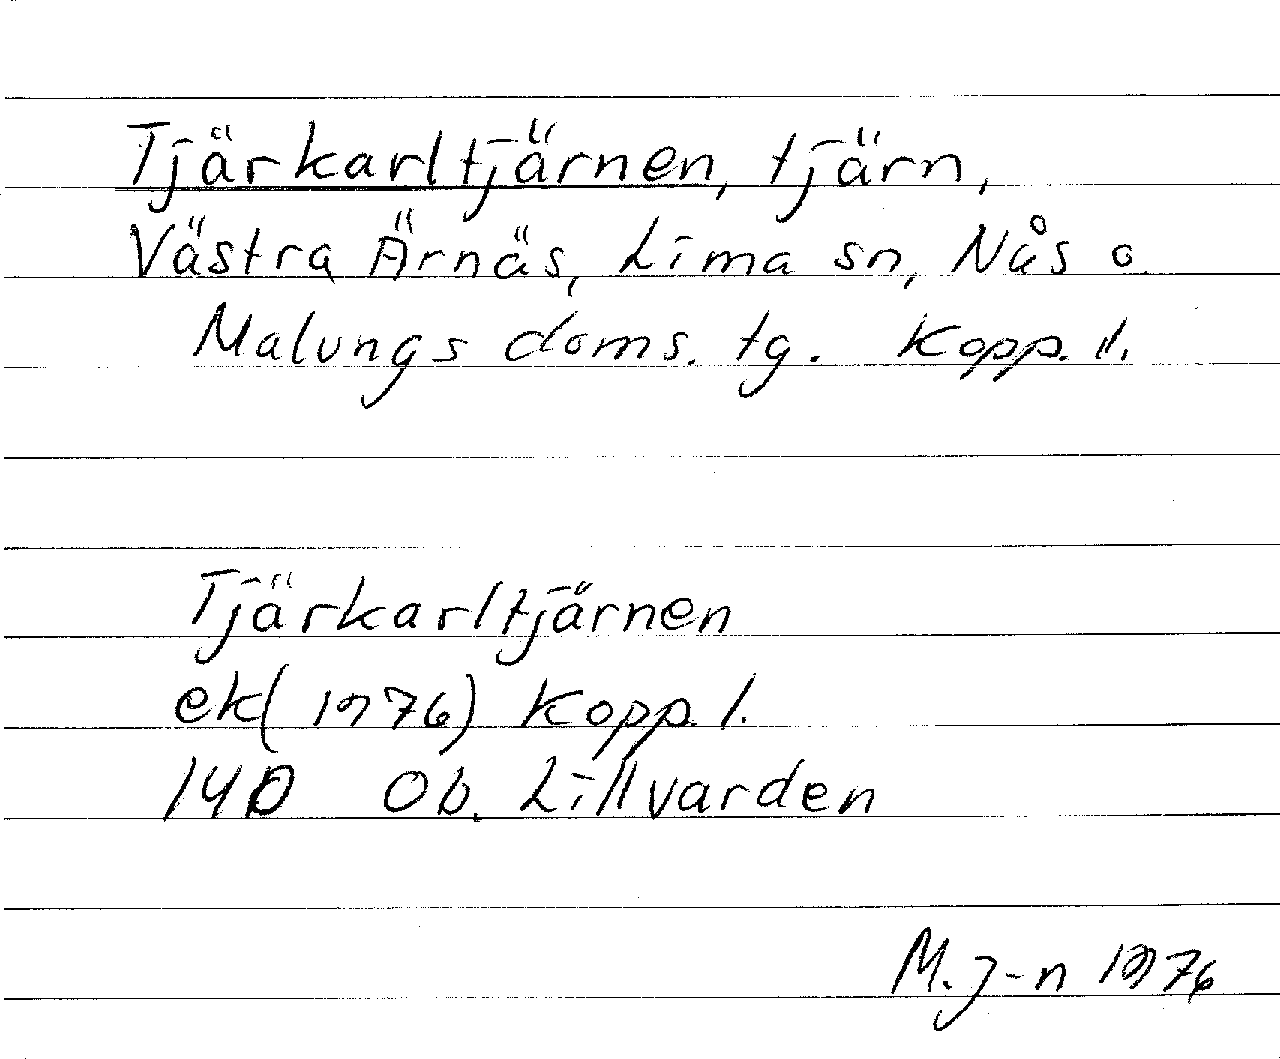 Tjärkarltjärnen, tjärn,
Västra Ärnäs, Lima sn, Nås o.
Malungs doms. tg. Kopp. l.
Tjärkarltjärnen
ek(1976) Kopp. l.
14D Ob. Lillvarden
M. J-n 1976